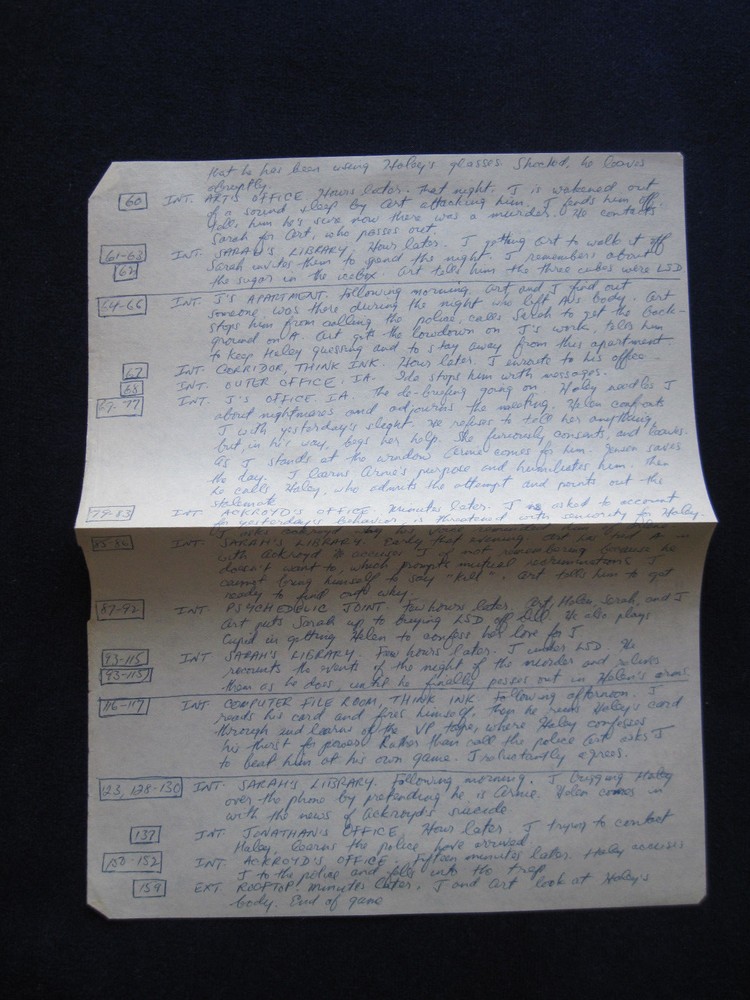 that he has been using Haley's glasses. Shocked, he leaves
abruptly.
60 INT. ART'S OFFICE. Hours later. That night. J is wakened out
of a sound sleep by Art attacking him. J fends him off,
tells him he's sure now there was a murder. He contacts
Sarah for Art, who passes out.
61-63 INT. SARAH'S LIBRARY. Hour later. J getting Art to walk it off
62 Sarah invites them to spend the night. J remembers about
the sugar in the icebox. Art tells him the three cubes were LSD
64-66 INT. J'S APARTMENT. Following morning. Art and J find out
someone was there during the night who left A's body. Art
stops him from calling the police, calls Sarah to get the back-
ground on A. Art gets the lowdown on J's work, tells him
to keep Haley guessing and to stay away from this apartment
67 INT. CORRIDOR, THINK INK. Hour later. J enroute to his office
68 INT. OUTER OFFICE, IA. stops him with messages.
INT. J'S OFFICE, IA. The de-briefing going on. Haley needles J
about nightmares and adjourns the meeting. Helen confronts
J with yesterday's slight. He refuses to tell her anything
but, in his way, begs her help. She furiously consents, and leaves.
As J stands at the window Arnie comes for him. Jensen saves
the day. J learns Arnie's purpose and humiliates him. Then
he calls Haley, who admits the attempt and points out the
stalemate
79-83 INT. ACKROYD'S OFFICE. Minutes later. J is asked to account
for yesterday's behavior, is threatened with seniority for Haley.
J asks Ackroyd why his
85-86 INT. SARAH'S LIBRARY. Early that evening. Art
with Ackroyd. He accuses J of not remembering because he
doesn't want to, which prompts mutual recriminations. J
cannot bring himself to say "kill". Art tells him to get
ready to find out why
87-92 INT. PSYCHEDELIC JOINT. Few hours later. Art, Helen, Sarah, and J
Art puts Sarah up to buying LSD off He also plays
Cupid in getting Helen to confess her love for J
93-115 INT. SARAH'S LIBRARY. Few hours later. J under LSD. He
(93-115) recounts the events of the night of the murder and relives
them as he does, until he finally passes out in Helen's arms.
116-117 INT. COMPUTER FILE ROOM, THINK INK. Following afternoon. J
reads his card and fires himself, then he runs Haley's card
through and learns of the VP tape, where Haley confesses
his thirst for power. Rather than call the police Art asks J
to beat him at his own game. J reluctantly agrees.
123, 128-130 INT. SARAH'S LIBRARY. Following morning. J bugging Haley
over the phone by pretending he is Arnie. Helen comes in
with the news of Ackroyd's suicide
137 INT. JONATHAN'S OFFICE. Hour later. J trying to contact
Haley, learns the police have arrived
150-152 INT. ACKROYD'S OFFICE. Fifteen minutes later. Haley accuses
J to the police and falls into the trap
159 EXT. ROOFTOP. Minutes later. J and Art look at Haley's
body. End of game